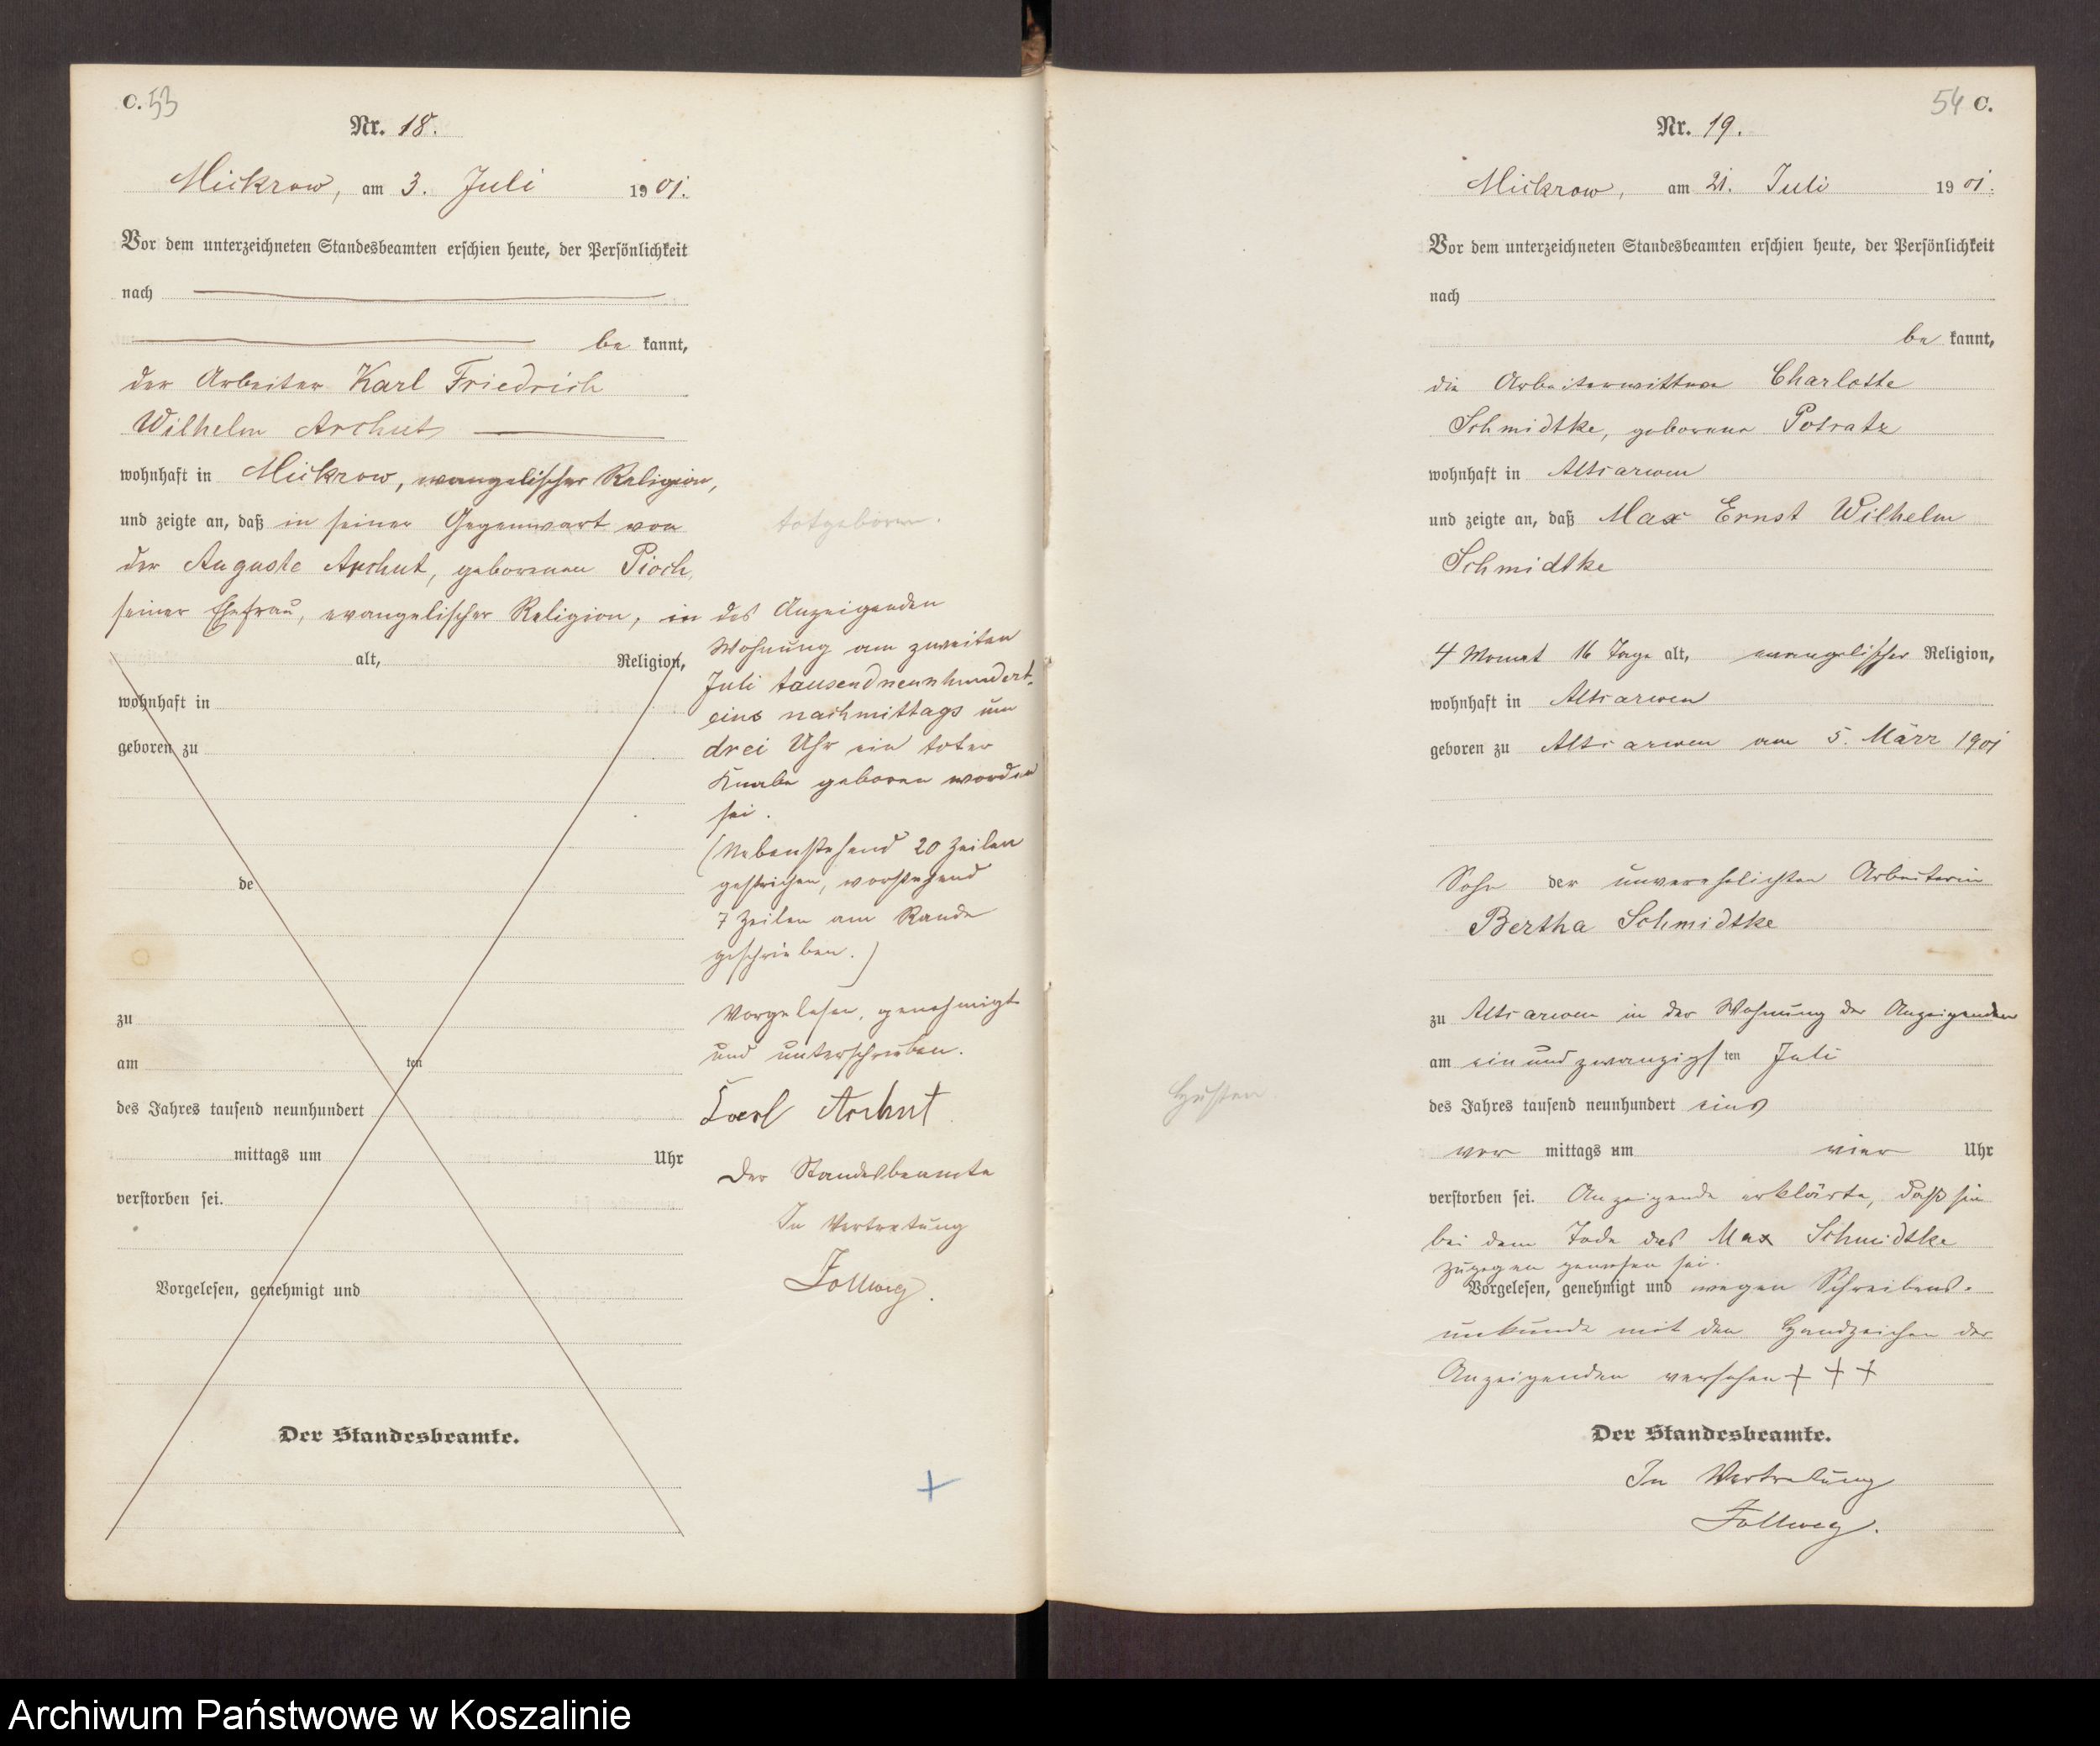 C. 53
Nr. 18.
Mickrow, am 3. Juli 1901.
Vor dem unterzeichneten Standesbeamten erschien heute, der Persönlichkeit
nach
be kannt,
der Arbeiter Karl Friedrich
Wilhelm Archut
wohnhaft in Mickrow, evangelischer Religion,
und zeigte an, daß in seiner Gegenwart von
der Auguste Archut, geborenen Pioch,
seiner Ehefrau, evangelischer Religion, in des Anzeigenden
totgeboren.
Wohnung am zweiten
Juli tausendneunhundert-
eins nachmittags um
drei Uhr ein toter
Knabe geboren worden
sei.
(Nebenstehend 20 Zeilen
gestrichen, vorstehend
7 Zeilen am Rande
geschrieben.)
Vorgelesen, genehmigt
und unterschrieben.
Carl Archut
Der Standesbeamte
In Vertretung
Follweg.
alt, Religion,
wohnhaft in
geboren zu
de
zu
am ten
des Jahres tausend neunhundert
mittags um Uhr
verstorben sei.
Vorgelesen, genehmigt und
Der Standesbeamte.
54 C.
Nr. 19.
Mickrow, am 21. Juli 1901.
Vor dem unterzeichneten Standesbeamten erschien heute, der Persönlichkeit
nach
be kannt,
die Arbeiterwittwe Charlotte
Schmidtke, geborene Potratz
wohnhaft in Altsarwen
und zeigte an, daß Max Ernst Wilhelm
Schmidtke
4 Monat 16 Tage alt, evangelischer Religion,
wohnhaft in Altsarwen
geboren zu Altsarwen am 5. März 1901
Sohn der unverehelichten Arbeiterin
Bertha Schmidtke
zu Altsarwen in der Wohnung der Anzeigenden
am einundzwanzigsten Juli
des Jahres tausend neunhundert eins
Husten
vor mittags um vier Uhr
verstorben sei. Anzeigende erklärte, daß sie
bei dem Tode des Max Schmidtke
zugegen gewesen sei.
Vorgelesen, genehmigt und wegen Schreibens-
unkunde mit den Handzeichen der
Anzeigenden versehen + + +
Der Standesbeamte.
In Vertretung
Follweg.
Archiwum Państwowe w Koszalinie